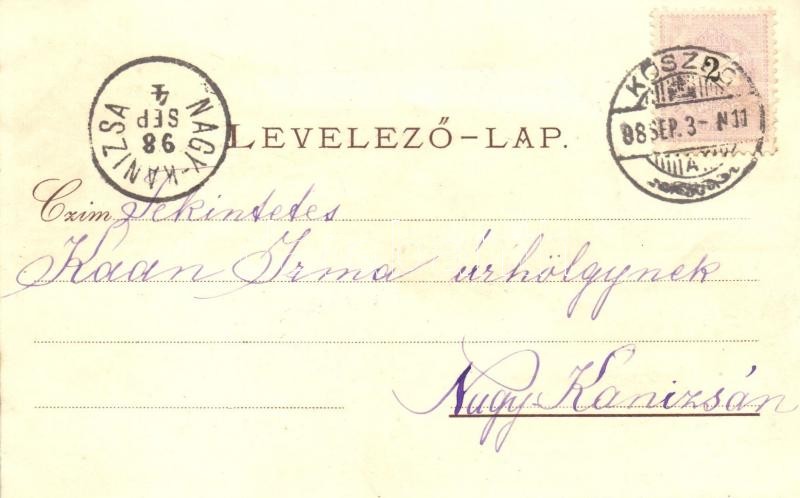 2
KŐSZEG
98 SEP. 3 - N 11
A
NAGY-KANIZSA
98
SEP
4
LEVELEZŐ-LAP.
Czim Tekintetes
Kaan Irma úrhölgynek
Nagy-Kanizsán